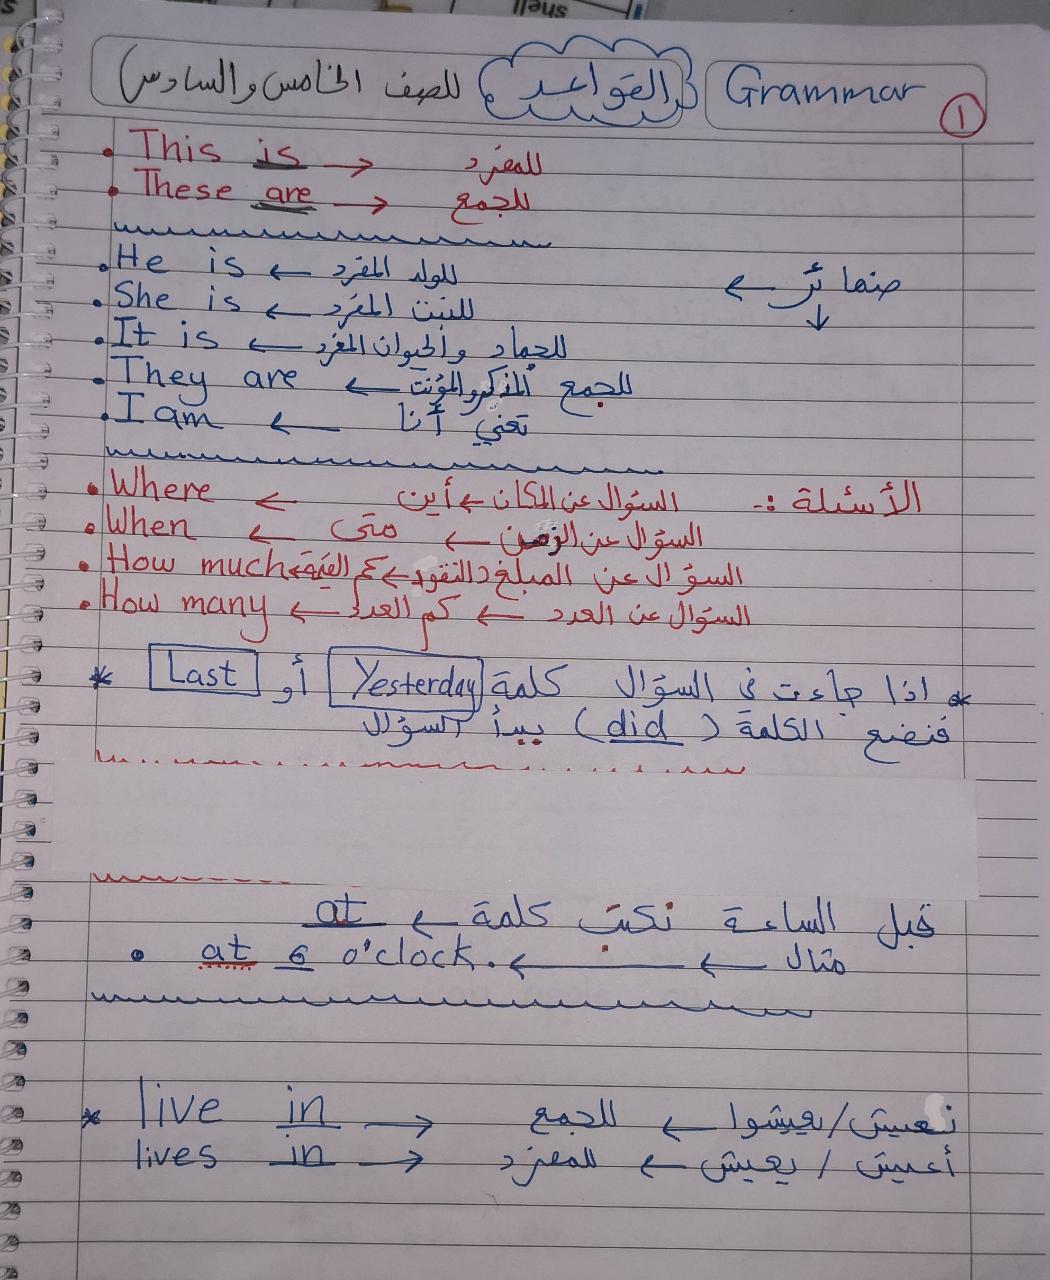 Grammar القواعد للصف الخامس والسادس ١
• This is → للمفرد
• These are → للجمع
ضمائر ←
↓
• He is ← للولد المفرد
• She is ← للبنت المفرد
• It is ← للجماد والحيوان المفرد
• They are ← للجمع المذكر والمؤنث
• I am ← تعني أنا
الأسئلة :-
• Where ← أين ← السؤال عن المكان
• When ← متى ← السؤال عن الزمن
• How much ← كم القيمة ← السؤال عن المبلغ والنقود
• How many ← كم العدد ← السؤال عن العدد
* اذا جاءت في السؤال كلمة Yesterday أو Last *
فنضع الكلمة (did) يبدأ السؤال
قبل الساعة نكتب كلمة ← at
• at 6 o'clock. ← ← مثال
* live in → للجمع ← نعيش/يعيشوا
lives in → للمفرد ← أعيش / يعيش